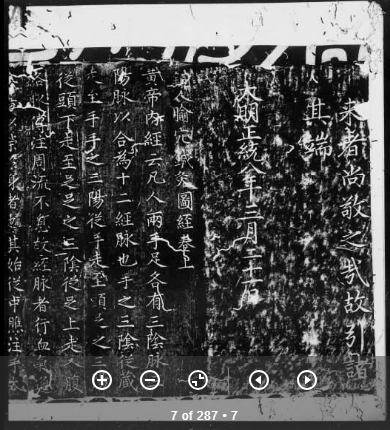 來者尚敬之哉故引諸
其端
大明正統八年三月二十一日
人腧穴鍼灸圖經卷上
黃帝內經云凡人兩手足各有三陰脉
陽脉以合為十二經脉也手之三陰從藏
走至手手之三陽從手走至頭足之三
從頭下走至足足之三陰從足上走入腹
注周流不息故經脉者行血
者也其始從中焦注手太
7 of 287 • 7